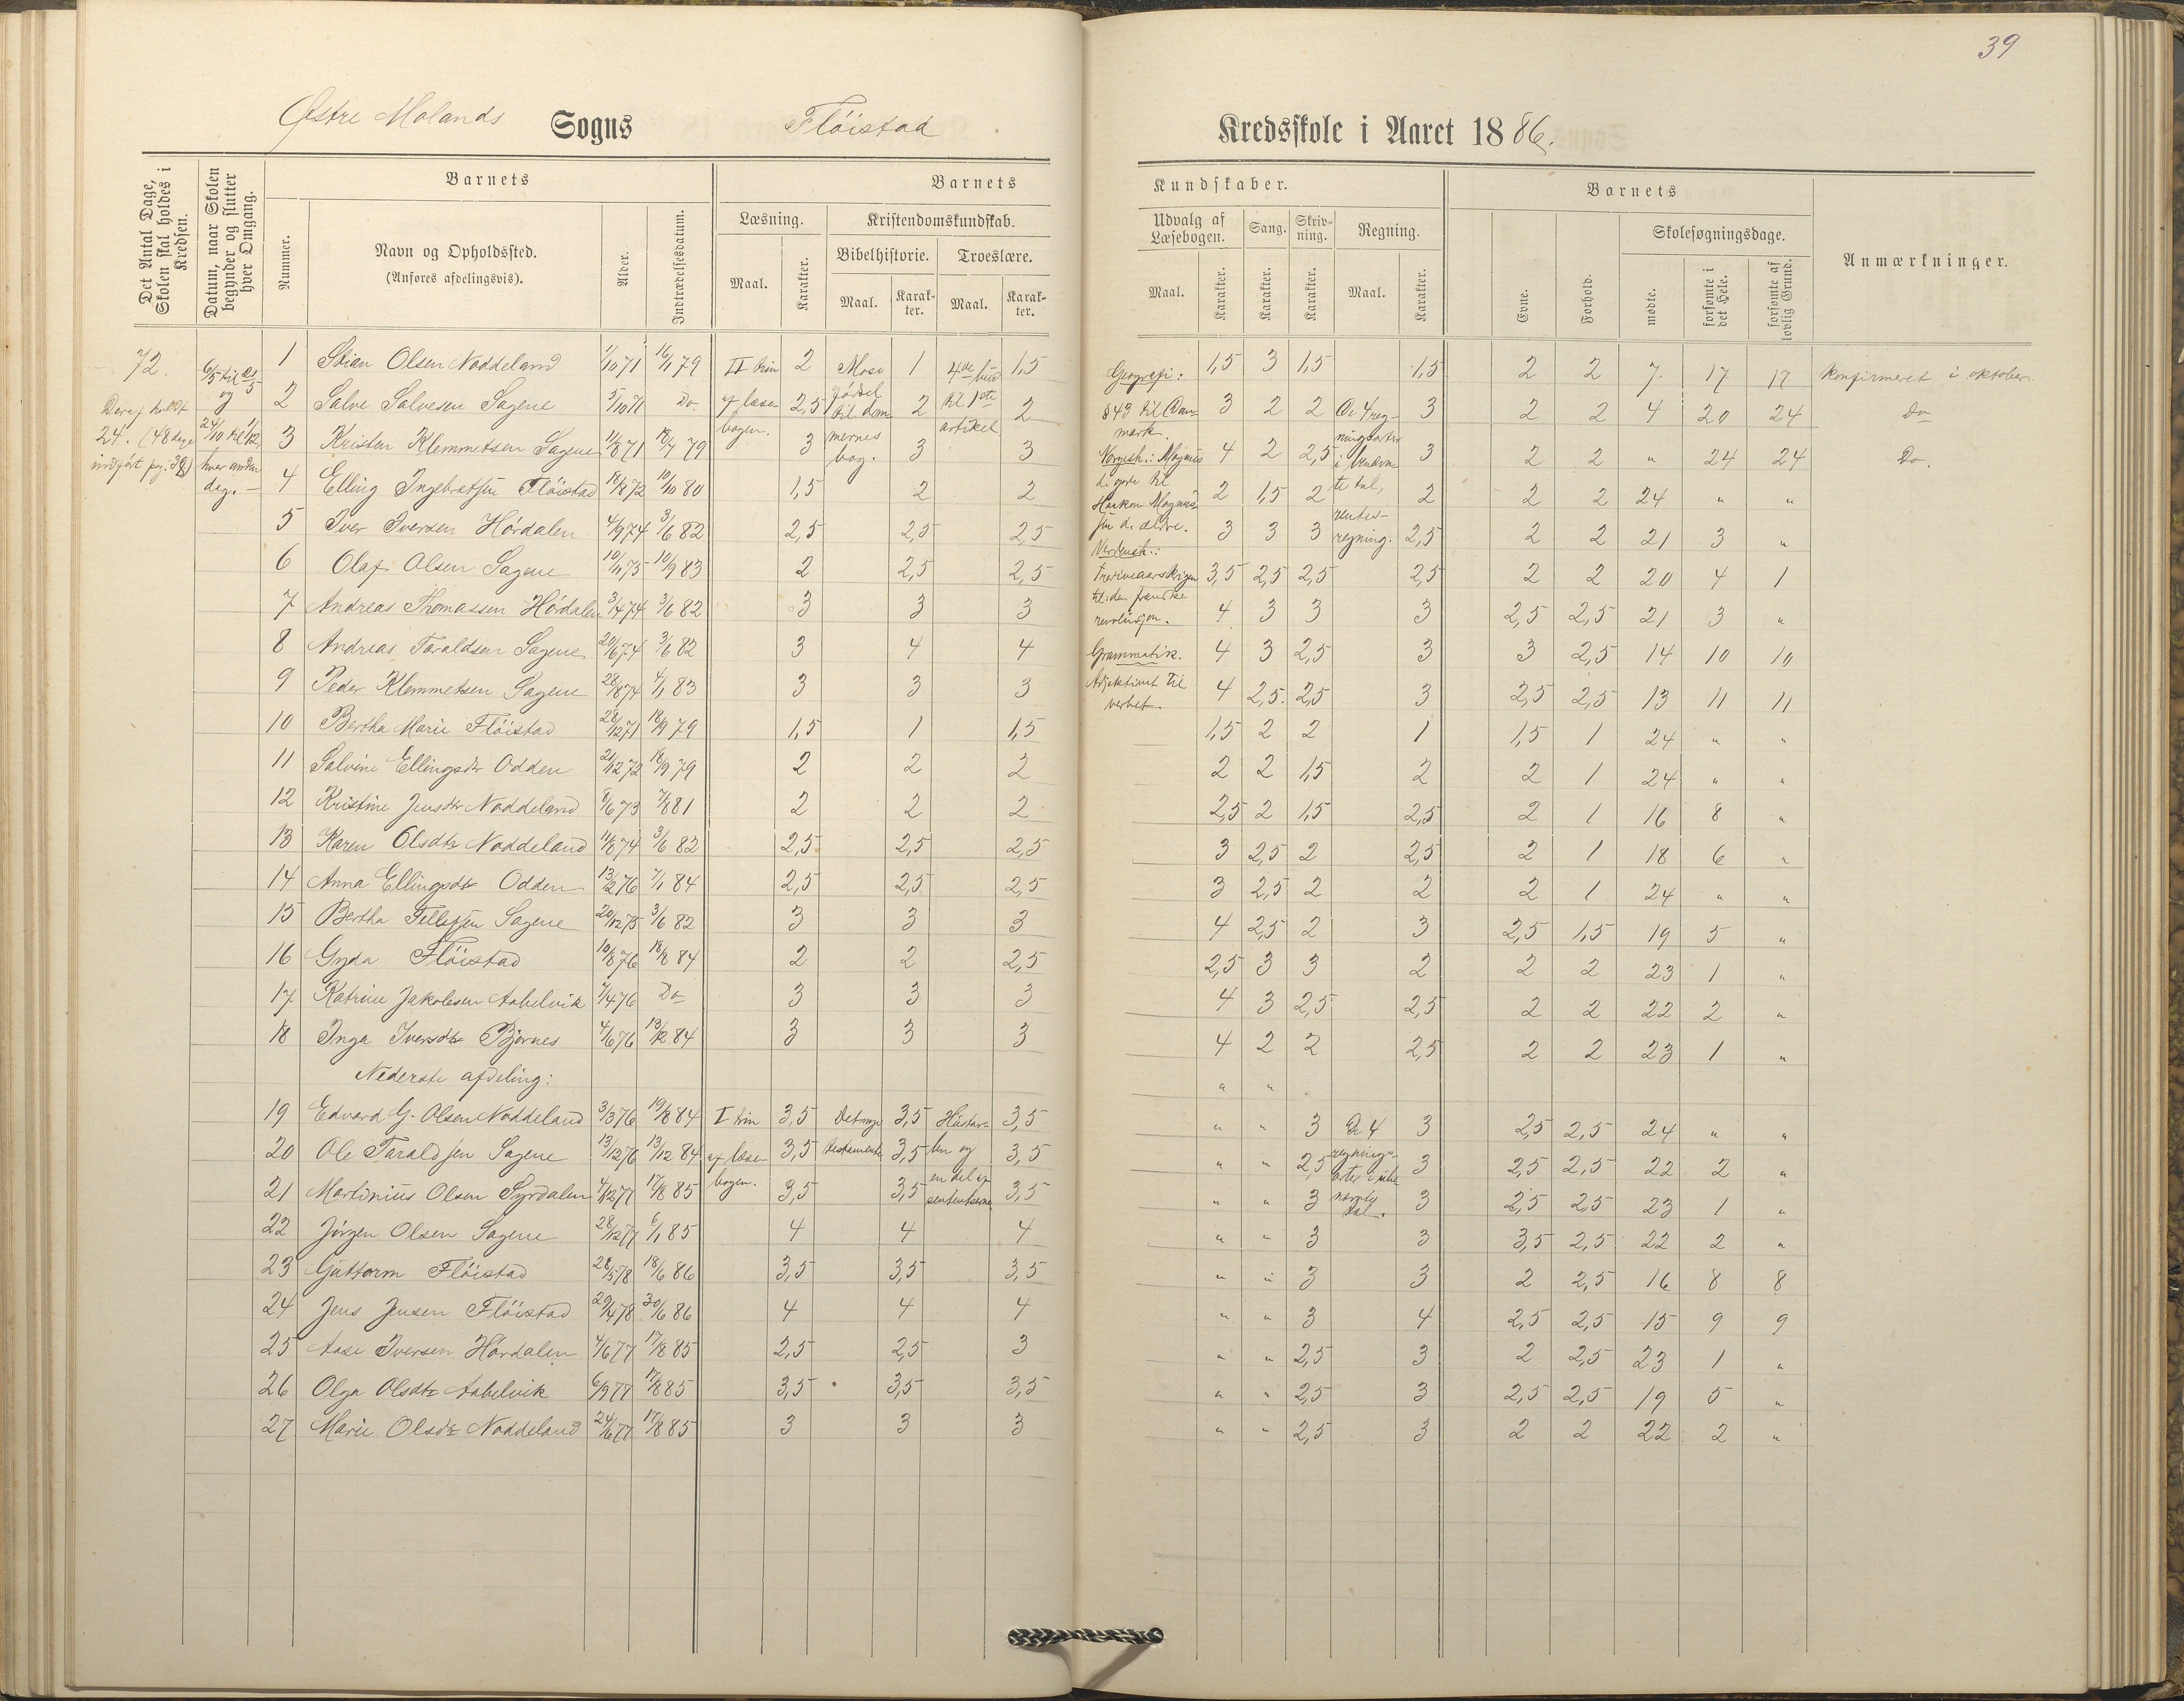 39
Østre Molands Sogns Flöistad Kredsskole i Aaret 1886.
Det Antal Dage, Skolen skal holdes i Kredsen.
Datum, naar Skolen begynder og slutter hver Omgang.
Barnets
Nummer.
Navn og Opholdssted.
(Anføres afdelingsvis).
Alder.
Indtrædelsesdatum.
Barnets Kundskaber.
Læsning.
Maal. Karakter.
Kristendomskundskab.
Bibelhistorie. Troeslære.
Maal. Karakter. Maal. Karakter.
Udvalg af Læsebogen. Sang. Skrivning. Regning.
Maal. Karakter. Karakter. Karakter. Maal. Karakter.
Barnets
Evne. Forhold.
Skolesøgningsdage.
mødte. forsømte i det Hele. forsømte af lovlig Grund.
Anmærkninger.
72.
Deraf holdt
24. (48 dage
indført pag. 38)
6/5 til 21/5
og
24/10 til 1/12
hver anden
dag.
II trin
af læse-
bogen.
Mose
fødsel
til dom
mernes
bog.
4de bud
til 1ste
artikel
Geografi:
§43 til Dan-
mark.
Norgesh.: Magnus
d. gode til
Haakon Magnus-
søn d. ældre.
Verdensh.:
Trediveaarskrigen
til den franske
revolusjon.
Grammatik.
Adjektivet til
verbet.
De 4 reg-
ningsarter
i benævn
te tal,
rentes-
regning.
1 Stian Olsen Noddeland 1/10 71 16/1 79 2 1 1,5 1,5 3 1,5 1,5 2 2 7 17 17 konfirmeret i oktober.
2 Salve Salvesen Sagene 5/10 71 Do 2,5 2 2 3 2 2 3 2 2 4 20 24 Do
3 Kristen Klemmetsen Sagene 11/8 71 18/9 79 3 3 3 4 2 2,5 3 2 2 " 24 24 Do.
4 Elling Ingebretsen Flöistad 18/8 72 10/10 80 1,5 2 2 2 1,5 2 2 2 2 24 " "
5 Iver Iversen Hördalen 4/9 74 3/6 82 2,5 2,5 2,5 3 3 3 2,5 2 2 21 3 "
6 Olaf Olsen Sagene 10/11 75 10/9 83 2 2,5 2,5 3,5 2,5 2,5 2,5 2 2 20 4 1
7 Andreas Thomassen Hördalen 3/4 74 3/6 82 3 3 3 4 3 3 3 2,5 2,5 21 3 "
8 Andreas Taraldsen Sagene 20/6 74 3/6 82 3 4 4 4 3 2,5 3 3 2,5 14 10 10
9 Peder Klemmetsen Sagene 28/8 74 4/1 83 3 3 3 4 2,5. 2,5 3 2,5 2,5 13 11 11
10 Bertha Marie Flöistad 28/12 71 18/9 79 1,5 1 1,5 1,5 2 2 1 1,5 1 24 " "
11 Salvine Ellingsdr Odden 21/12 72 18/9 79 2 2 2 2 2 1,5 2 2 1 24 " "
12 Kristine Jensdr Noddeland 8/6 73 7/8 81 2 2 2 2,5 2 1,5 2,5 2 1 16 8 "
13 Karen Olsdtr Noddeland 11/8 74 3/6 82 2,5 2,5 2,5 3 2,5 2 2,5 2 1 18 6 "
14 Anna Ellingsdtr Odden 13/2 76 7/1 84 2,5 2,5 2,5 3 2,5 2 2 2 1 24 " "
15 Bertha Tellefsen Sagene 20/12 75 3/6 82 3 3 3 4 2,5 2 3 2,5 1,5 19 5 "
16 Gyda Flöistad 10/8 76 18/8 84 2 2 2,5 2,5 3 3 2 2 2 23 1 "
17 Katrine Jakobsen Aabelvik 7/4 76 Do 3 3 3 4 3 2,5 2,5 2 2 22 2 "
18 Inga Iversdtr Bjørnes 4/6 76 13/12 84 3 3 3 4 2 2 2,5 2 2 23 1 "
Nederste afdeling: " "
I trin
af læse-
bogen.
Det nye
testamente
en del af
De 4
regnings-
tal.
19 Edvard G. Olsen Noddeland 3/3 76 19/8 84 3,5 3,5 3,5 " " 3 3 2,5 2,5 24 " "
20 Ole Taraldsen Sagene 13/12 76 13/12 84 3,5 3,5 3,5 " " 2,5 3 2,5 2,5 22 2 "
21 Martinius Olsen Syrdalen 4/12 77 17/8 85 3,5 3,5 3,5 " " 3 3 2,5 2,5 23 1 "
22 Jörgen Olsen Sagene 28/12 77 6/1 85 4 4 4 " " 3 3 3,5 2,5 22 2 "
23 Guttorm Flöistad 28/5 78 18/6 86 3,5 3,5 3,5 " " 3 3 2 2,5 16 8 8
24 Jens Jensen Flöistad 29/4 78 30/6 86 4 4 4 " " 3 4 2,5 2,5 15 9 9
25 Aase Iversen Hördalen 4/6 77 17/8 85 2,5 2,5 3 " " 2,5 3 2 2,5 23 1 "
26 Olga Olsdtr Aabelvik 6/9 77 17/8 85 3,5 3,5 3,5 " " 2,5 3 2,5 2,5 19 5 "
27 Marie Olsdtr Noddeland 24/6 77 17/8 85 3 3 3 " " 2,5 3 2 2 22 2 "